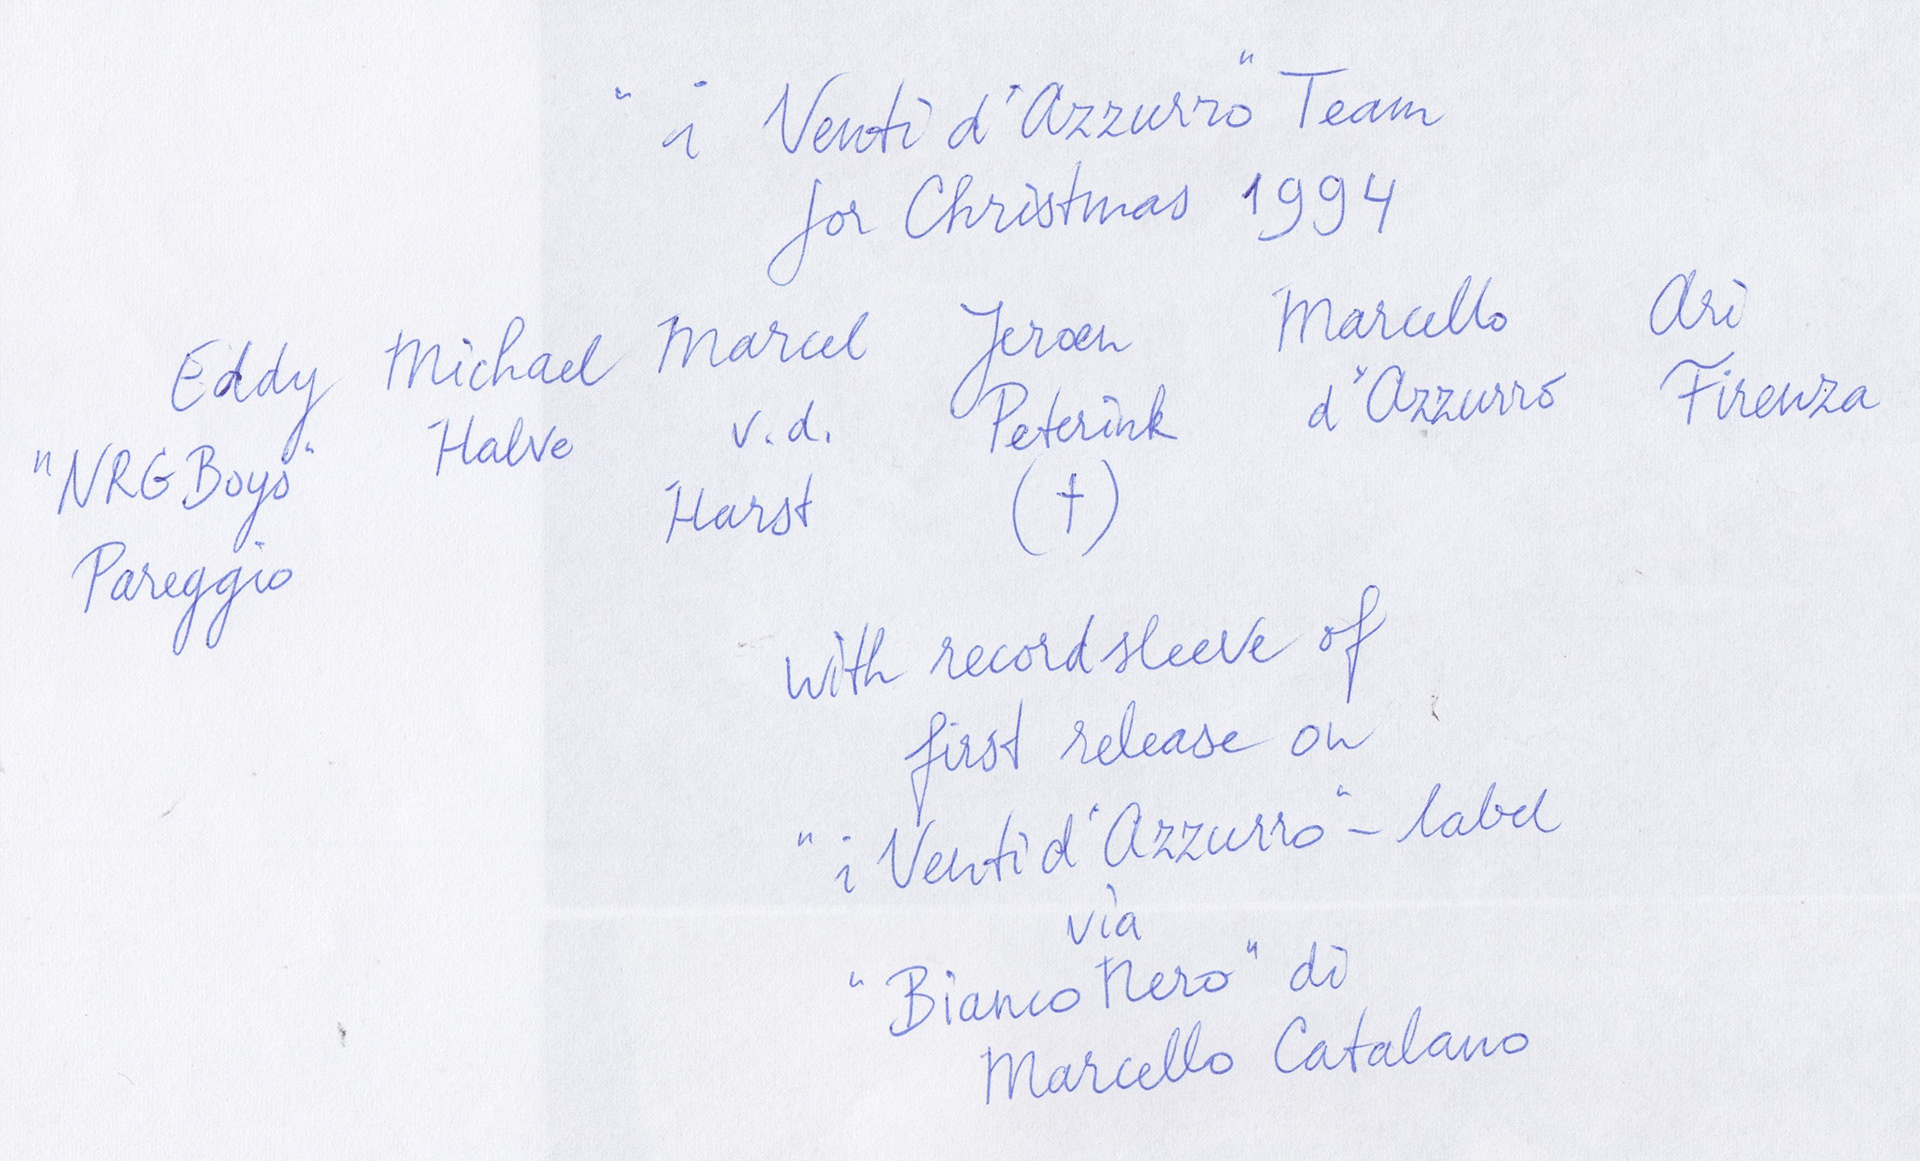 "i Venti d'Azzurro" Team
for Christmas 1994
Eddy Michael Marcel Jeroen Marcello Ari
"NRG Boys" Halve v.d. Peterink d'Azzurro Firenza
Pareggio Harst (†)
with recordsleeve of
first release on
"i Venti d'Azzurro"-label
via
"Bianco Nero" di
Marcello Catalano